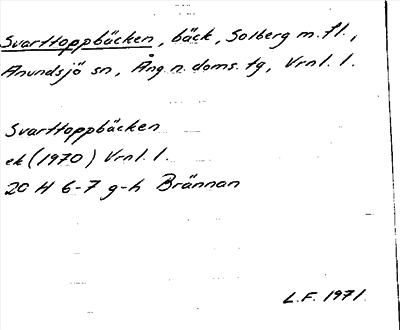 Svarttoppbäcken, bäck, Solberg m. fl.,
Anundsjö sn, Ång n. doms. tg, Vrnl. l.
Svarttoppbäcken
ek (1970) Vrnl. l.
20 H 6-7 g-h Brännan
L.F. 1971.